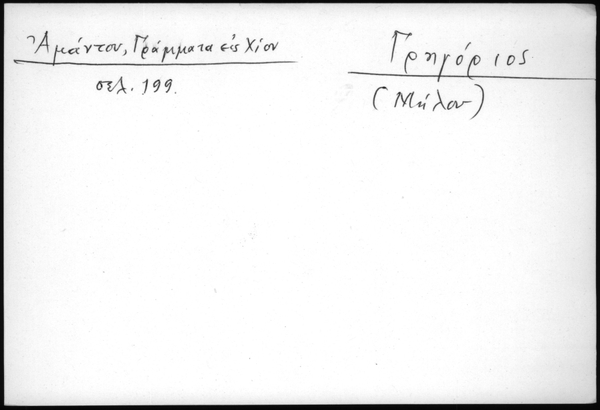 Ἀμάντου, Γράμματα εἰς Χίον
σελ. 199.
Γρηγόριος
(Μήλου)